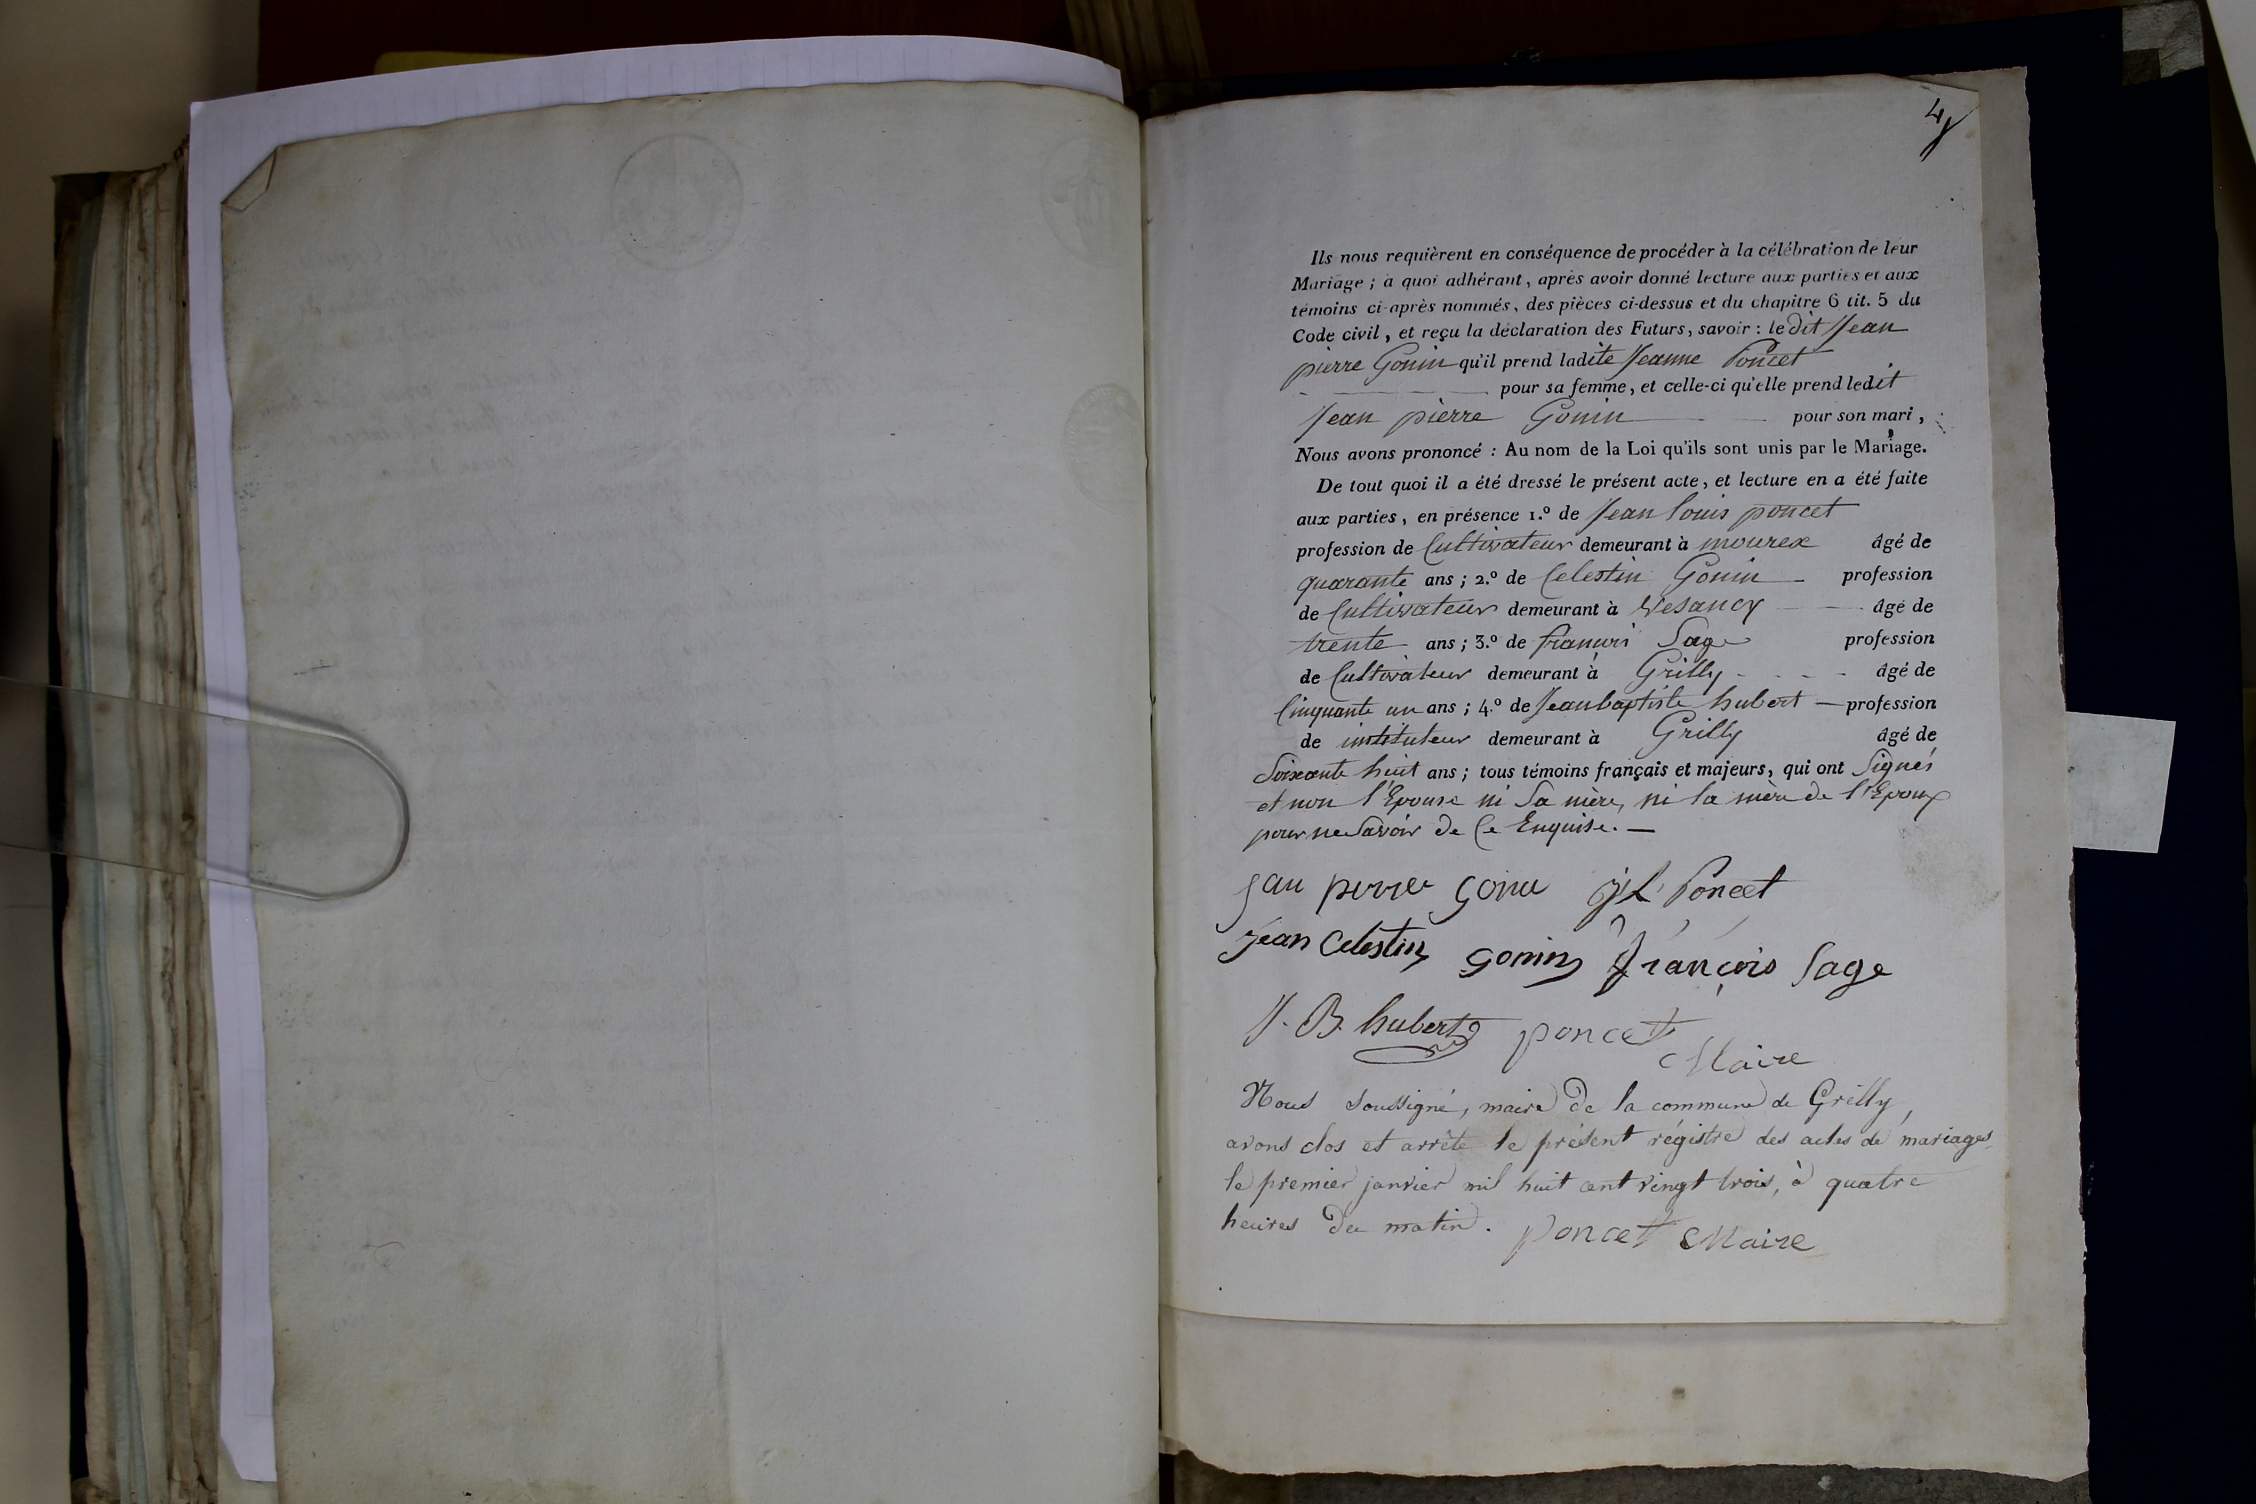 4
Ils nous requièrent en conséquence de procéder à la célébration de leur
Mariage ; à quoi adhérant, après avoir donné lecture aux parties et aux
témoins ci-après nommés, des pièces ci-dessus et du chapitre 6 tit. 5 du
Code civil, et reçu la déclaration des Futurs, savoir : ledit Jean
pierre Gonin qu'il prend ladite Jeanne Poncet
pour sa femme, et celle-ci qu'elle prend ledit
Jean pierre Gonin pour son mari,
Nous avons prononcé : Au nom de la Loi qu'ils sont unis par le Mariage.
De tout quoi il a été dressé le présent acte, et lecture en a été faite
aux parties, en présence 1.º de Jean louis poncet
profession de Cultivateur demeurant à mourex âgé de
quarante ans ; 2.º de Celestin Gonin profession
de Cultivateur demeurant à Vesancy âgé de
trente ans ; 3.º de françois Sage profession
de Cultivateur demeurant à Grilly âgé de
Cinquante un ans ; 4.º de Jean baptiste hubert profession
de instituteur demeurant à Grilly âgé de
Soixante huit ans ; tous témoins français et majeurs, qui ont Signés
et non l'Epouse ni Sa mère, ni la mère de l'Epoux
pour ne Savoir de Ce Enquise. —
jau pierre gonin J L Poncet
Jean Celestin gonin françois Sage
J. B. hubert poncet
Maire
Nous soussigné, maire de la commune de Grilly,
avons clos et arrêté le présent régistre des actes de mariages
le premier janvier mil huit cent vingt trois, à quatre
heures du matin. poncet Maire